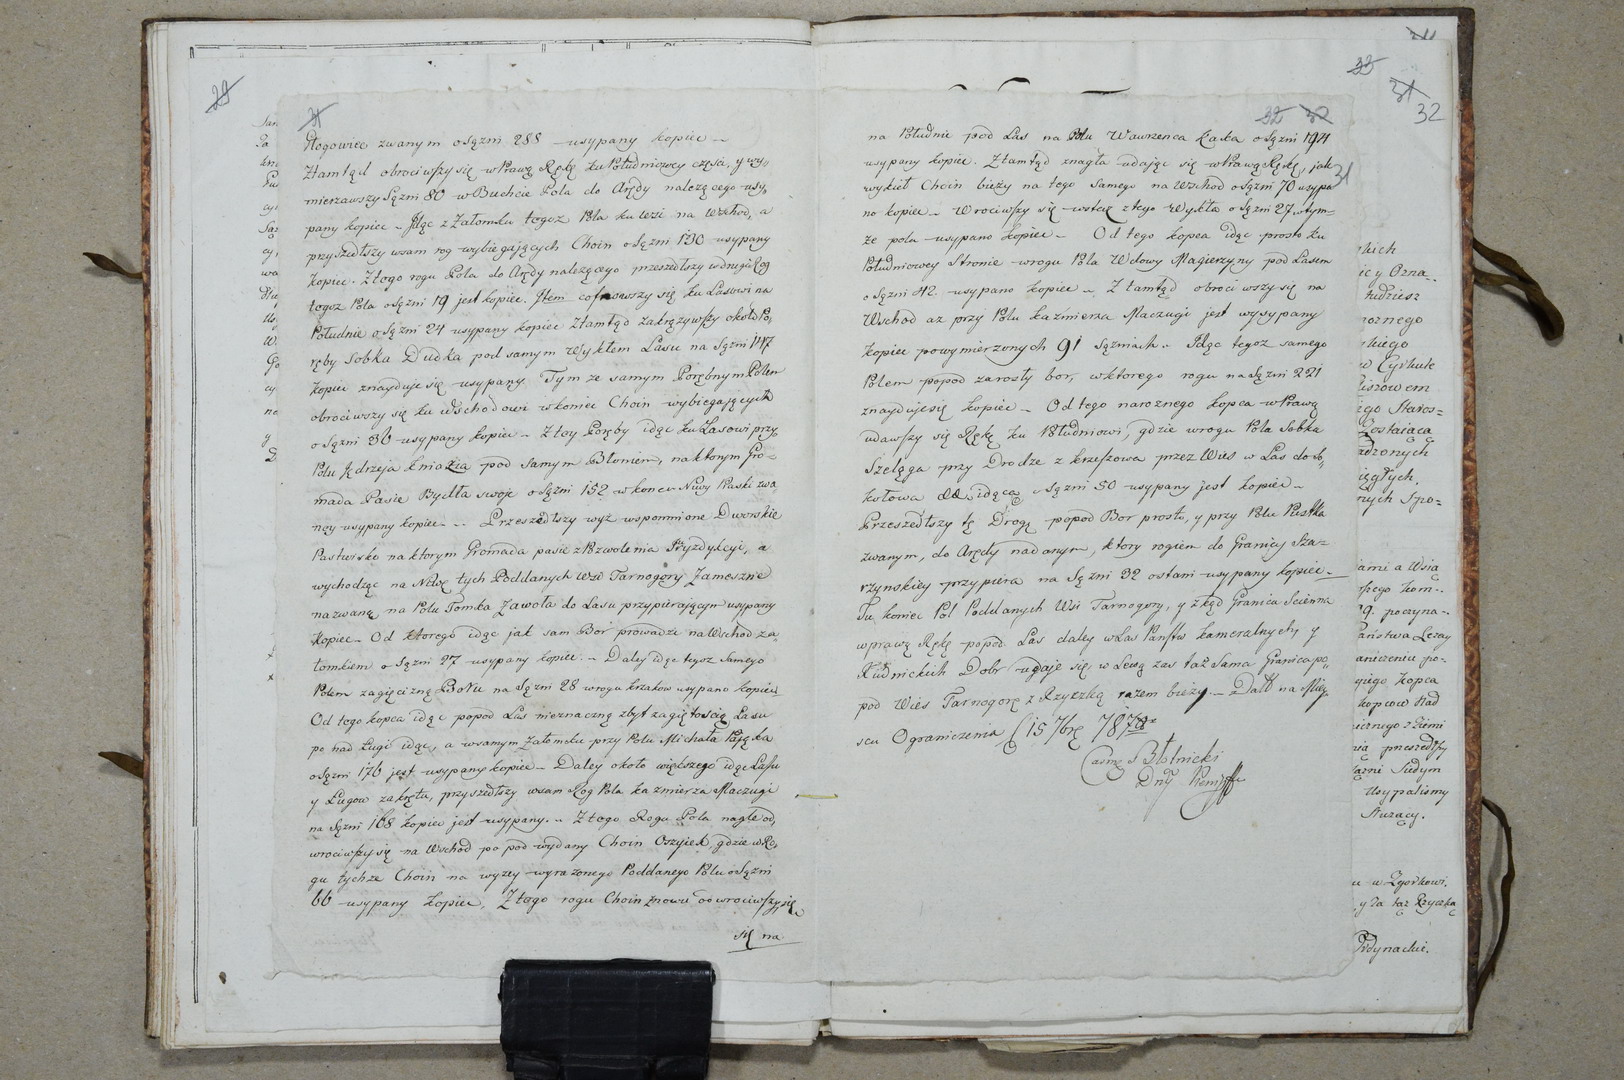 29
31
Głogowiec zwanym o Sążni 288 usypany kopiec –
Ztamtąd obrociwszy się w Prawą Rękę ku Południowey części, y wy,,
mierzawszy Sążni 80 w Buchcie Pola do Arędy należącego usy,
pany kopiec – Jdąc z Załomku tegoż Pola ku wsi na Wschod, a
przyszedłszy w sam rog wybiegających Choin o Sążni 130 usypany
kopiec. Z tego rogu Pola do Arędy należącego przeszedłszy w drugi Rog
tegoż Pola o Sążni 19 jest kopiec. Jtem cofnowszy się ku Lasowi na
Południe o Sążni 24 usypany kopiec ztamtąd zakrążywszy około Po,
ręby Sobka Dudka pod samym Wykłem Lasu na Sążni 117
kopiec znayduje się usypany. Tym ze samym Porębnym Polem
obrociwszy się ku Wschodowi w koniec Choin wybiegających
o Sążni 36 usypany kopiec – Z tey Poręby idąc ku Lasowi przy
Polu Jędrzeja Kniazia pod samym Błoniem, na ktorym Gro-
mada Pasie Bydła swoje o Sążni 152 w koncu Niwy Piaski zwa
ney usypany kopiec – – Przeszedłszy wyż wspomnione Dworskie
Pastwisko na ktorym Gromada pasie z Pozwolenia Jryzdykcyi, a
wychodząc na Niwę tych Poddanych Wsi Tarnogory Zameszne
nazwaną, na Polu Tomka Zawoła do Lasu przypierającym usypany
Kopiec – Od ktorego idąc jak sam Bor prowadzi na Wschod za,,
łomkiem o Sążni 27 usypany kopiec. – Daley idąc tegoz Samego
Polem zagięcizną Boru na Sążni 28 w rogu krzakow usypano kopiec
Od tego kopca idąc popod Las nieznaczną zbyt zagiętością Lasu
po nad Ługi idąc, a w samym Załomku przy Polu Michała Pająka
o Sążni 176 jest usypany kopiec – Daley około większego idąc Lasu
y Ługow zakrętu, przyszedłszy w sam Rog Pola Kazmierza Maczugi
na Sążni 168 kopiec jest usypany. – Z tego Rogu Pola nagle od,
wrociwszy się na Wschod po pod wydany Choin Oszyjek, gdzie w Ro,
gu tychże Choin na wyzey wyrażonego Poddanego Polu o Sążni
66 usypany kopiec, Z tego rogu Choin znowu odwrociwszy się
na
33
31
32
32
32
31
na Południe pod Las na Polu Wawrzenca Łaska o Sążni 194
usypany kopiec. Ztamtąd znagła udając się w Prawą Rękę, jak
wykieł Choin bieży na tego samego na Wschod o Sążni 70 usypa
no kopiec – Wrociwszy się wstecz z tego Wykła o Sążni 27 w tym-
że polu usypano kopiec – Od tego kopca idąc prosto ku
Południowey Stronie w rogu Pola Wdowy Magierzyny pod Lasem
o Sążni 42 usypano kopiec – Ztamtąd obrociwszy się na
Wschod az przy Polu Kazmierza Maczugi jest wysypany
kopiec po wymierzonych 91 Sążniach – Jdąc tegoz samego
Polem popod zarosły bor, w ktorego rogu na Sążni 221
znaydujesię kopiec – Od tego naroznego kopca w Prawą
udawszy się Rękę ku Południowi, gdzie w rogu Pola Sobka
Szeląga przy Drodze z Krzeszowa przez Wies w Las do So,,
kołowa idącą o Sążni 50 usypany jest kopiec –
Przeszedłszy tę Drogę popod Bor prosto, y przy Polu Pustka
zwanym, do Arędy nadanym, ktory rogiem do Granicy Sza-
rzynskiey przypiera na Sążni 32 ostatni usypany kopiec –
Tu koniec Pol Poddanych Wsi Tarnogory, y ztąd Granica Scienna
w prawą Rękę popod Las daley w Las Panstw kameralnych y
Rudnickich Dobr udaje się w Lewą zas taż Sama Granica po,,
pod Wieś Tarnogorę z Rzyczką razem bieży. – Datt na Miey
scu Ograniczenia 15 7brę 787